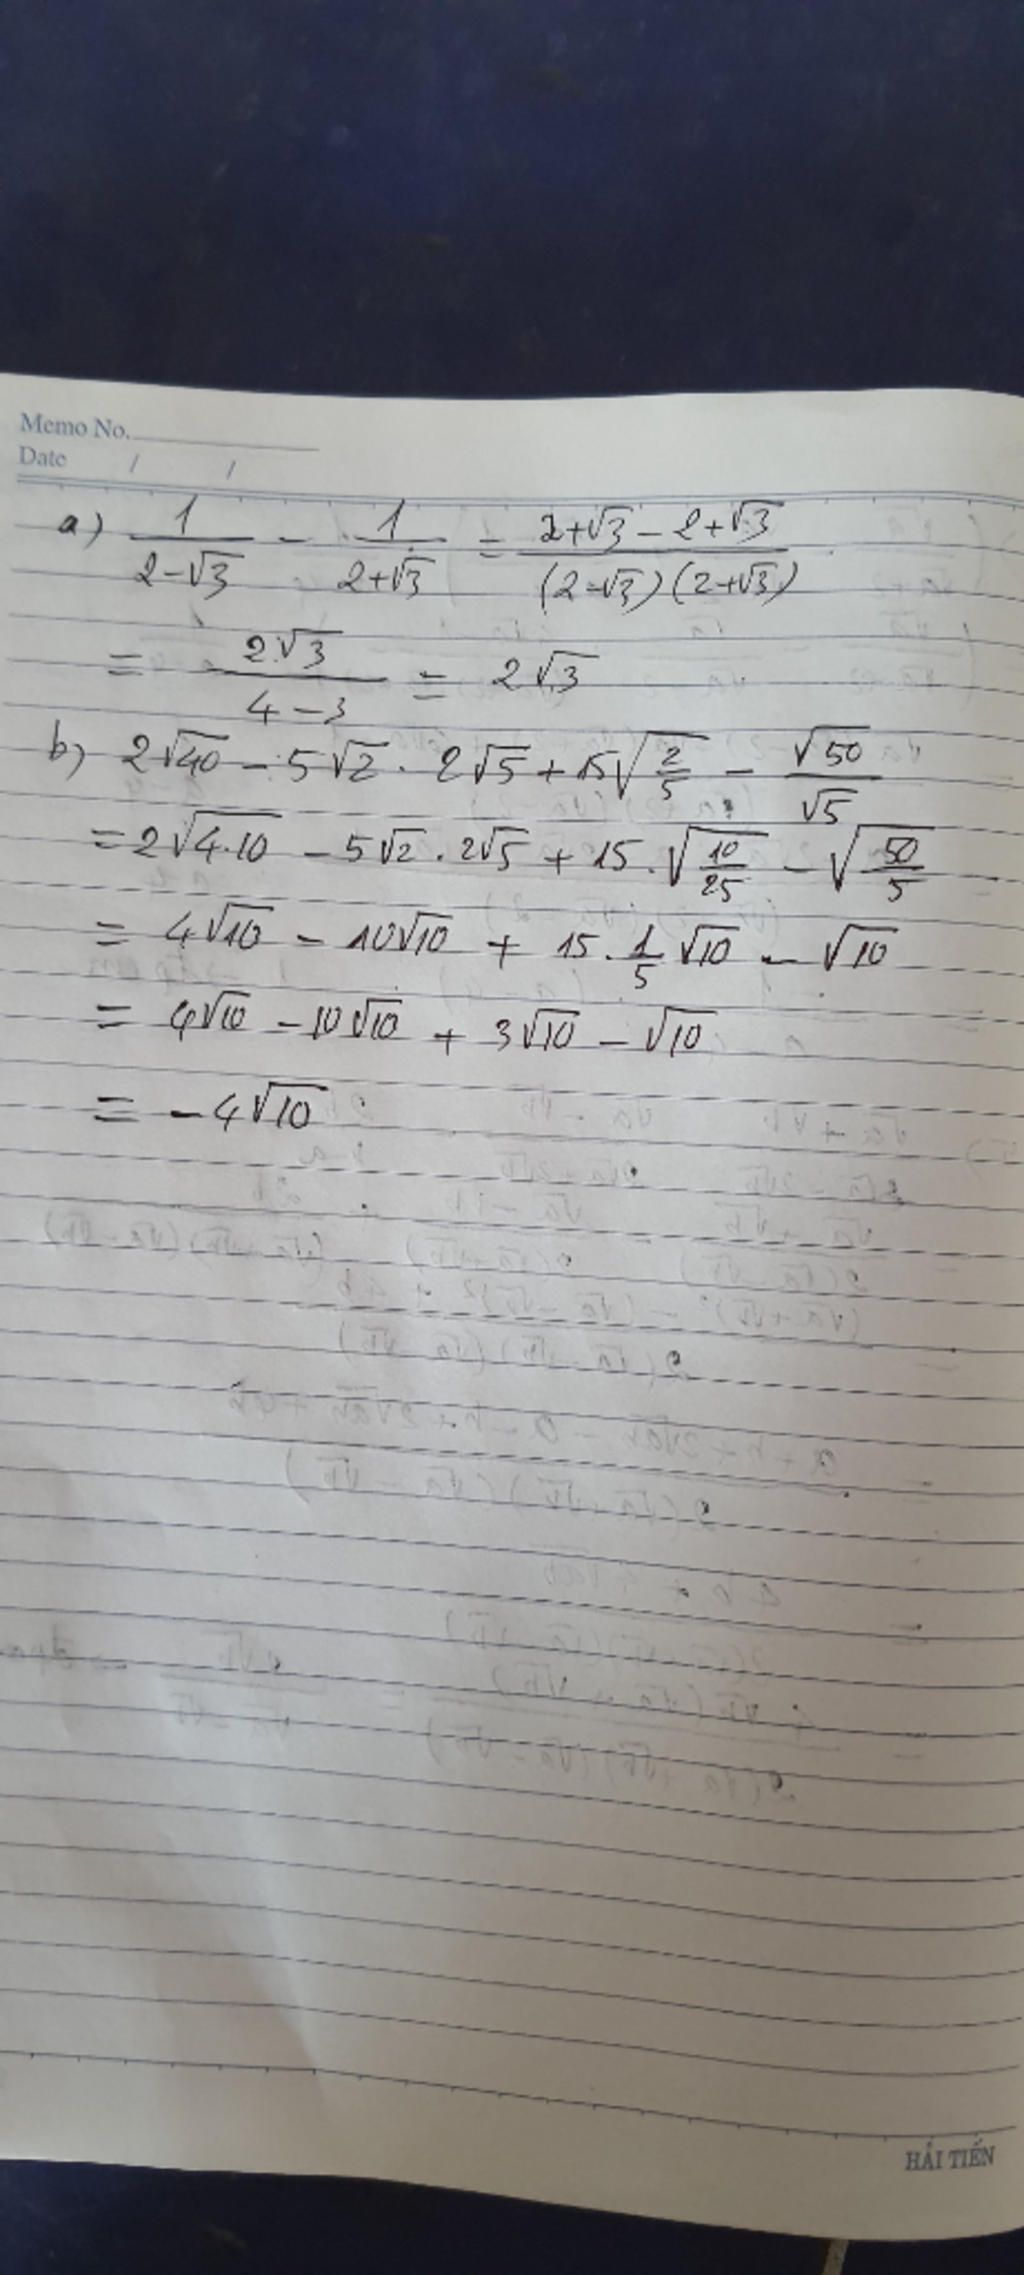 Memo No.
Date / /
a) 1/(2-√3) - 1/(2+√3) = (2+√3-2+√3)/((2-√3)(2+√3))
= 2√3/(4-3) = 2√3
b) 2√40 - 5√2 . 2√5 + 15√(2/5) - √50/√5
= 2√(4.10) - 5√2 . 2√5 + 15 . √(10/25) - √(50/5)
= 4√10 - 10√10 + 15 . 1/5 √10 - √10
= 4√10 - 10√10 + 3√10 - √10
= -4√10
HẢI TIẾN